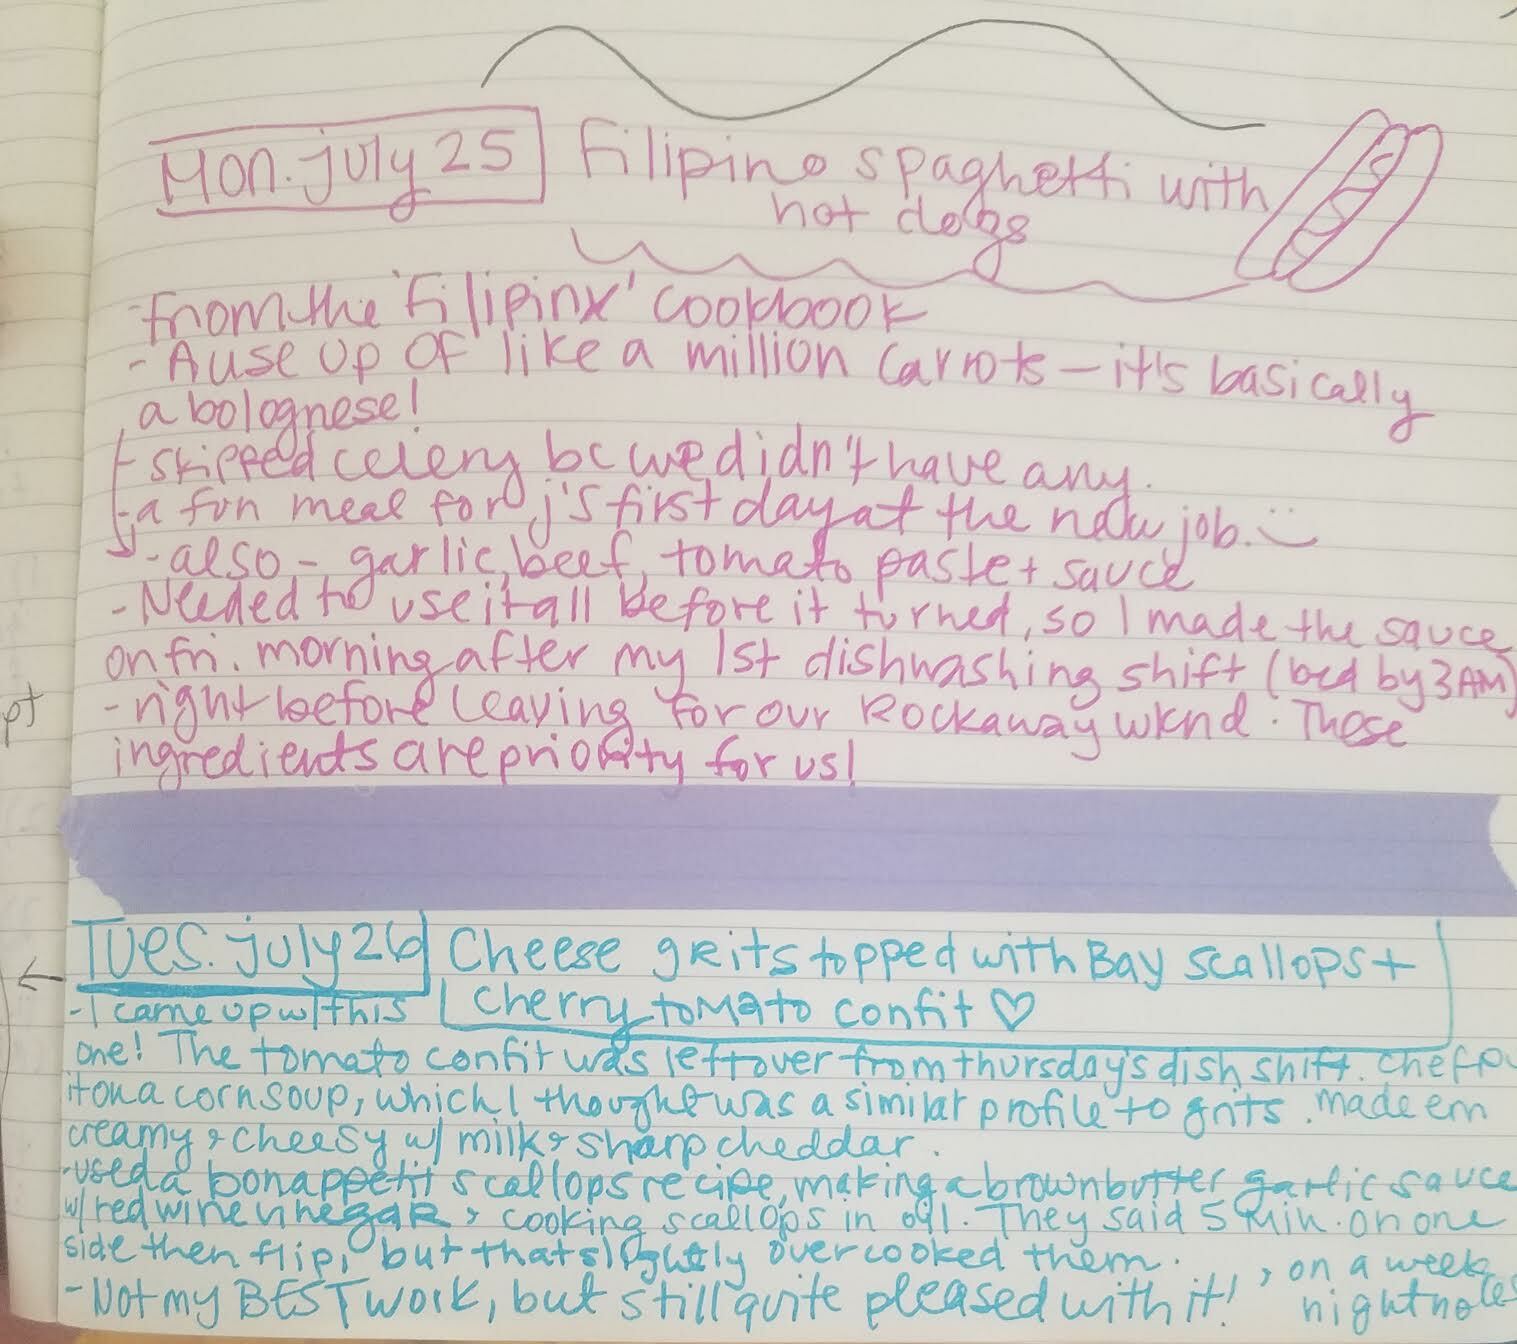 Mon. july 25 Filipino spaghetti with
hot dogs
from the 'Filipinx' cookbook
- A use up of like a million carrots - it's basically
a bolognese!
- skipped celery bc we didn't have any.
- a fun meal for j's first day at the new job. :)
- also - garlic, beef, tomato paste + sauce
- Needed to use it all before it turned, so I made the sauce
on fri. morning after my 1st dishwashing shift (bed by 3 AM)
pt
- right before leaving for our Rockaway wknd. These
ingredients are priority for us!
← Tues. july 26 Cheese grits topped with Bay scallops +
cherry tomato confit ♡
- I came up w/ this
one! The tomato confit was leftover from thursday's dish shift. Chef
it on a corn soup, which I thought was a similar profile to grits. made em
creamy & cheesy w/ milk & sharp cheddar.
- used a bon appetit scallops recipe, making a brown butter garlic sauce
w/ red wine vinegar, cooking scallops in oil. They said 5 min. on one
side then flip, but that slightly overcooked them.
- Not my BEST work, but still quite pleased with it!, on a week
night no less